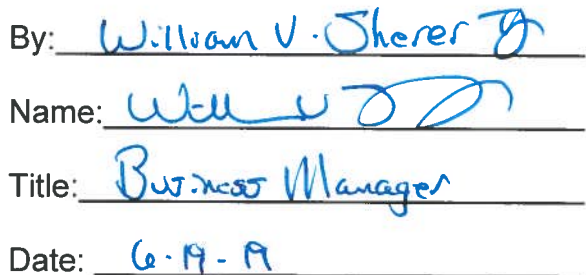 By: William V. Sherer
Name: Will V
Title: Business Manager
Date: 6-19-19